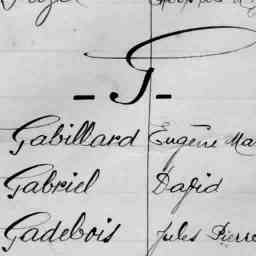 - G -
Gabillard Eugène Ma
Gabriel David
Gadebois Jules Pierre